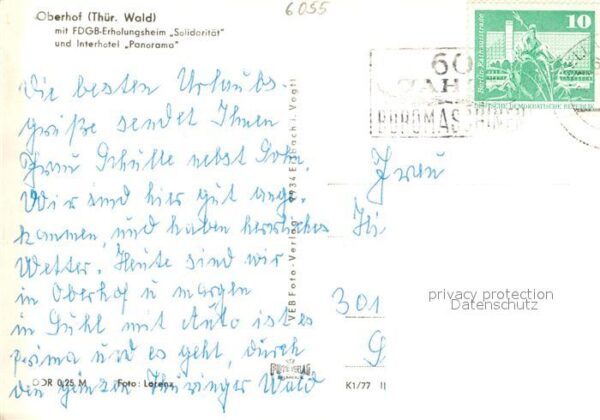 6055
Oberhof (Thür. Wald)
mit FDGB-Erholungsheim „Solidarität"
und Interhotel „Panorama"
Die besten Urlaubs-
grüße sendet Ihnen
Frau Schulte nebst Sohn.
Wir sind hier gut ange-
kommen, und haben herrliches
Wetter. Heute sind wir
in Oberhof u morgen
in Suhl mit Auto ist es
prima und es geht, durch
den ganzen Thüringer Wald
DDR 0,25 M Foto: Lorenz
VEB Foto-Verlag 9934 Erlbach i. Vogtl
60
BÜROMASCHINEN
10
DEUTSCHE DEMOKRATISCHE REPUBLIK
Frau
Hi
301
privacy protection
Datenschutz
K1/77